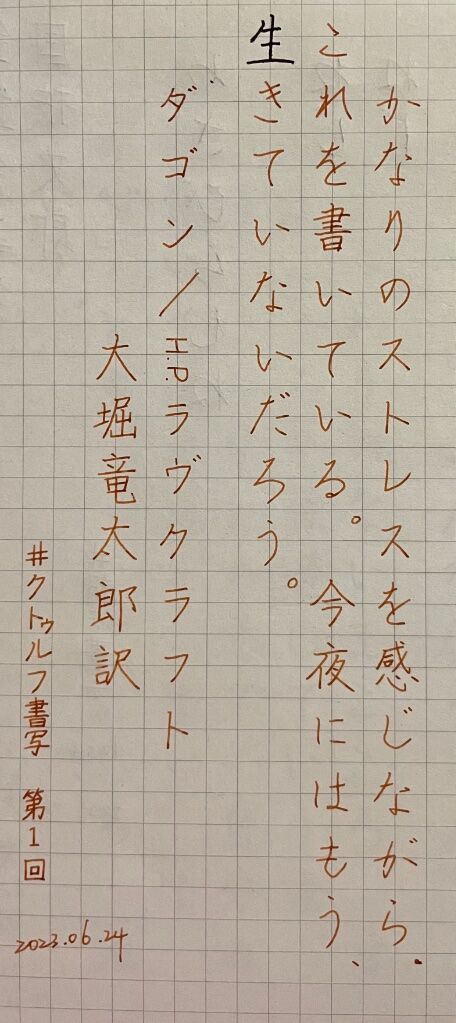 かなりのストレスを感じながら、
これを書いている。今夜にはもう、
生きていないだろう。
ダゴン/H.P.ラヴクラフト
大堀竜太郎訳
#クトゥルフ書写 第1回
2023.06.24